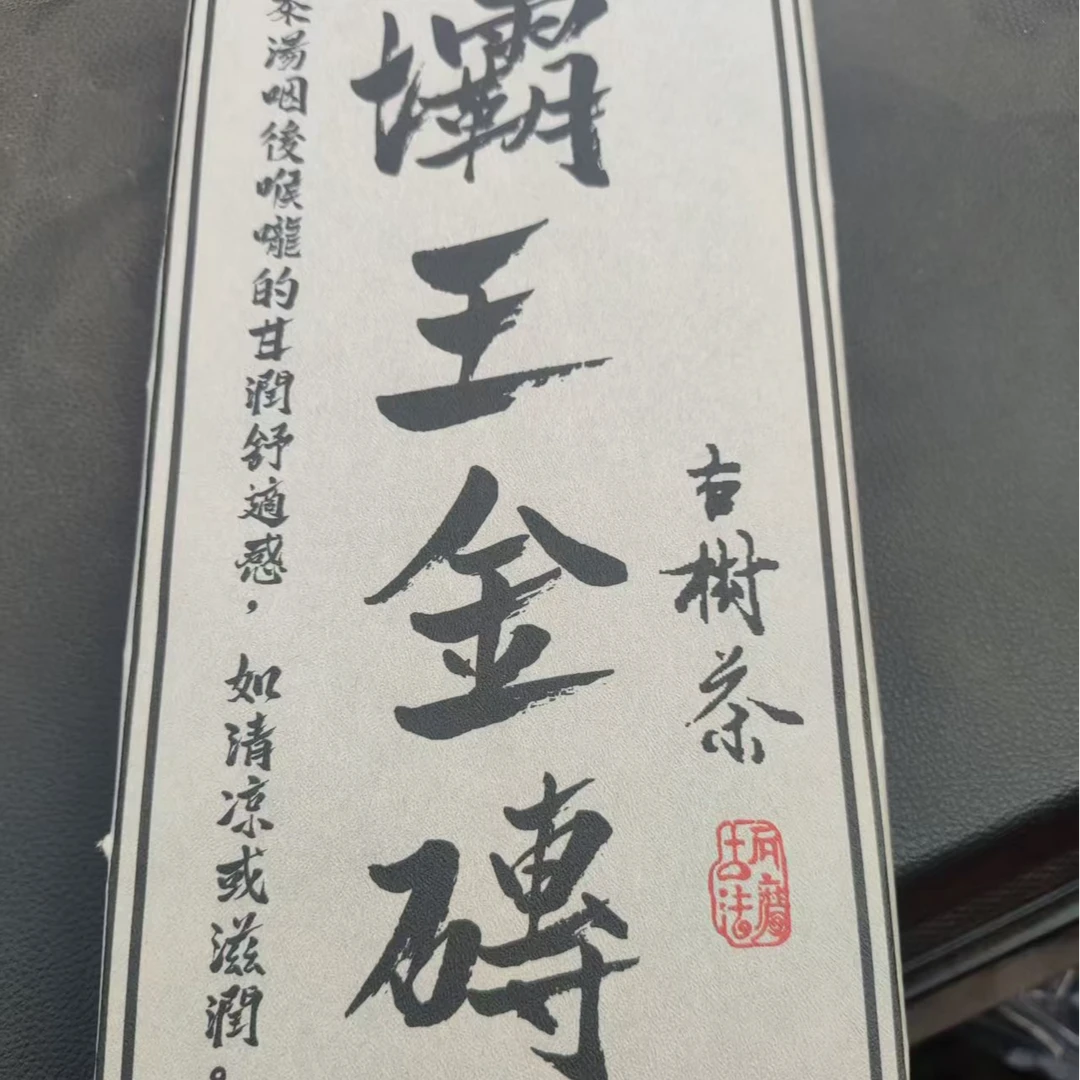 古樹茶
壩王金磚
茶湯咽後喉嚨的甘潤舒適感，如清凉或滋潤。